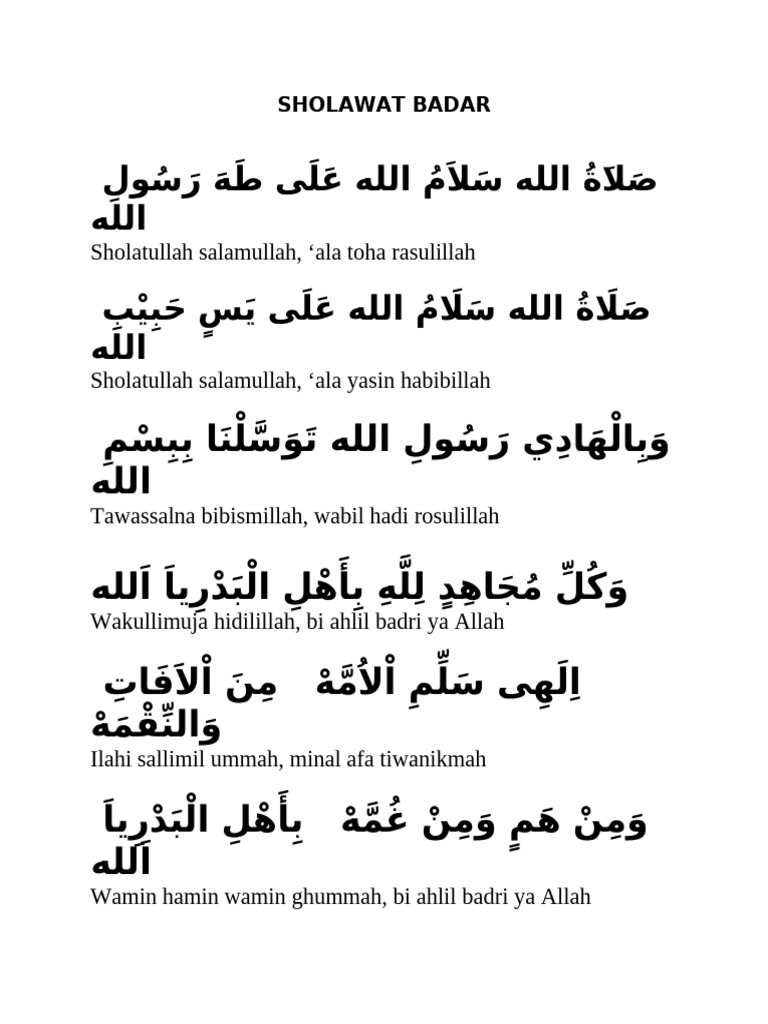 SHOLAWAT BADAR
صَلاَةُ الله سَلاَمُ الله عَلَى طَهَ رَسُولِ
الله
Sholatullah salamullah, ‘ala toha rasulillah
صَلَاةُ الله سَلَامُ الله عَلَى يَسٍ حَبِيْبِ
الله
Sholatullah salamullah, ‘ala yasin habibillah
وَبِالْهَادِي رَسُولِ الله تَوَسَّلْنَا بِبِسْمِ
الله
Tawassalna bibismillah, wabil hadi rosulillah
وَكُلِّ مُجَاهِدٍ لِلَّهِ بِأَهْلِ الْبَدْرِياَ اَلله
Wakullimuja hidilillah, bi ahlil badri ya Allah
اِلَهِى سَلِّمِ اْلاُمَّهْ مِنَ اْلاَفَاتِ
وَالنِّقْمَهْ
Ilahi sallimil ummah, minal afa tiwanikmah
وَمِنْ هَمٍ وَمِنْ غُمَّهْ بِأَهْلِ الْبَدْرِياَ
اَلله
Wamin hamin wamin ghummah, bi ahlil badri ya Allah